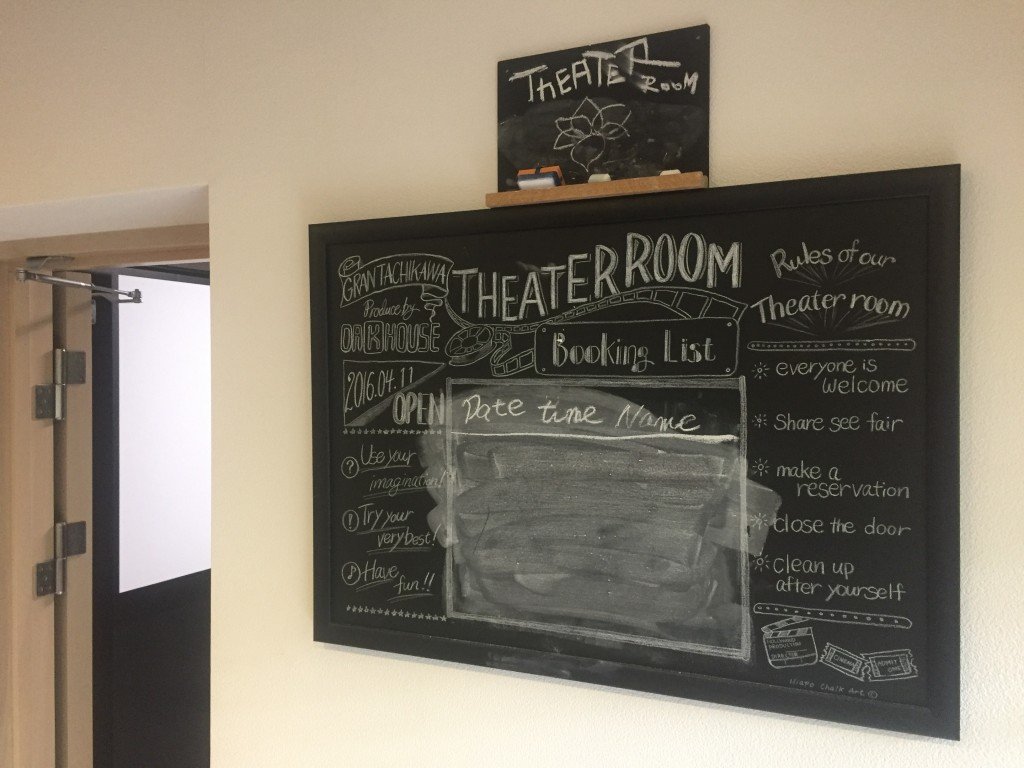 THEATER
ROOM
GRAN TACHIKAWA
Produce by
2016.04.11
OPEN
? Use your
imagination!
! Try your
very best!
♪ Have
fun!!
THEATER ROOM
Booking List
Date time Name
Rules of our
Theater room
everyone is
welcome
Share see fair
make a
reservation
Close the door
clean up
after yourself
HOLLYWOOD
PRODUCTION
DIRECTOR
CINEMA
ADMIT
ONE
Chalk Art ©